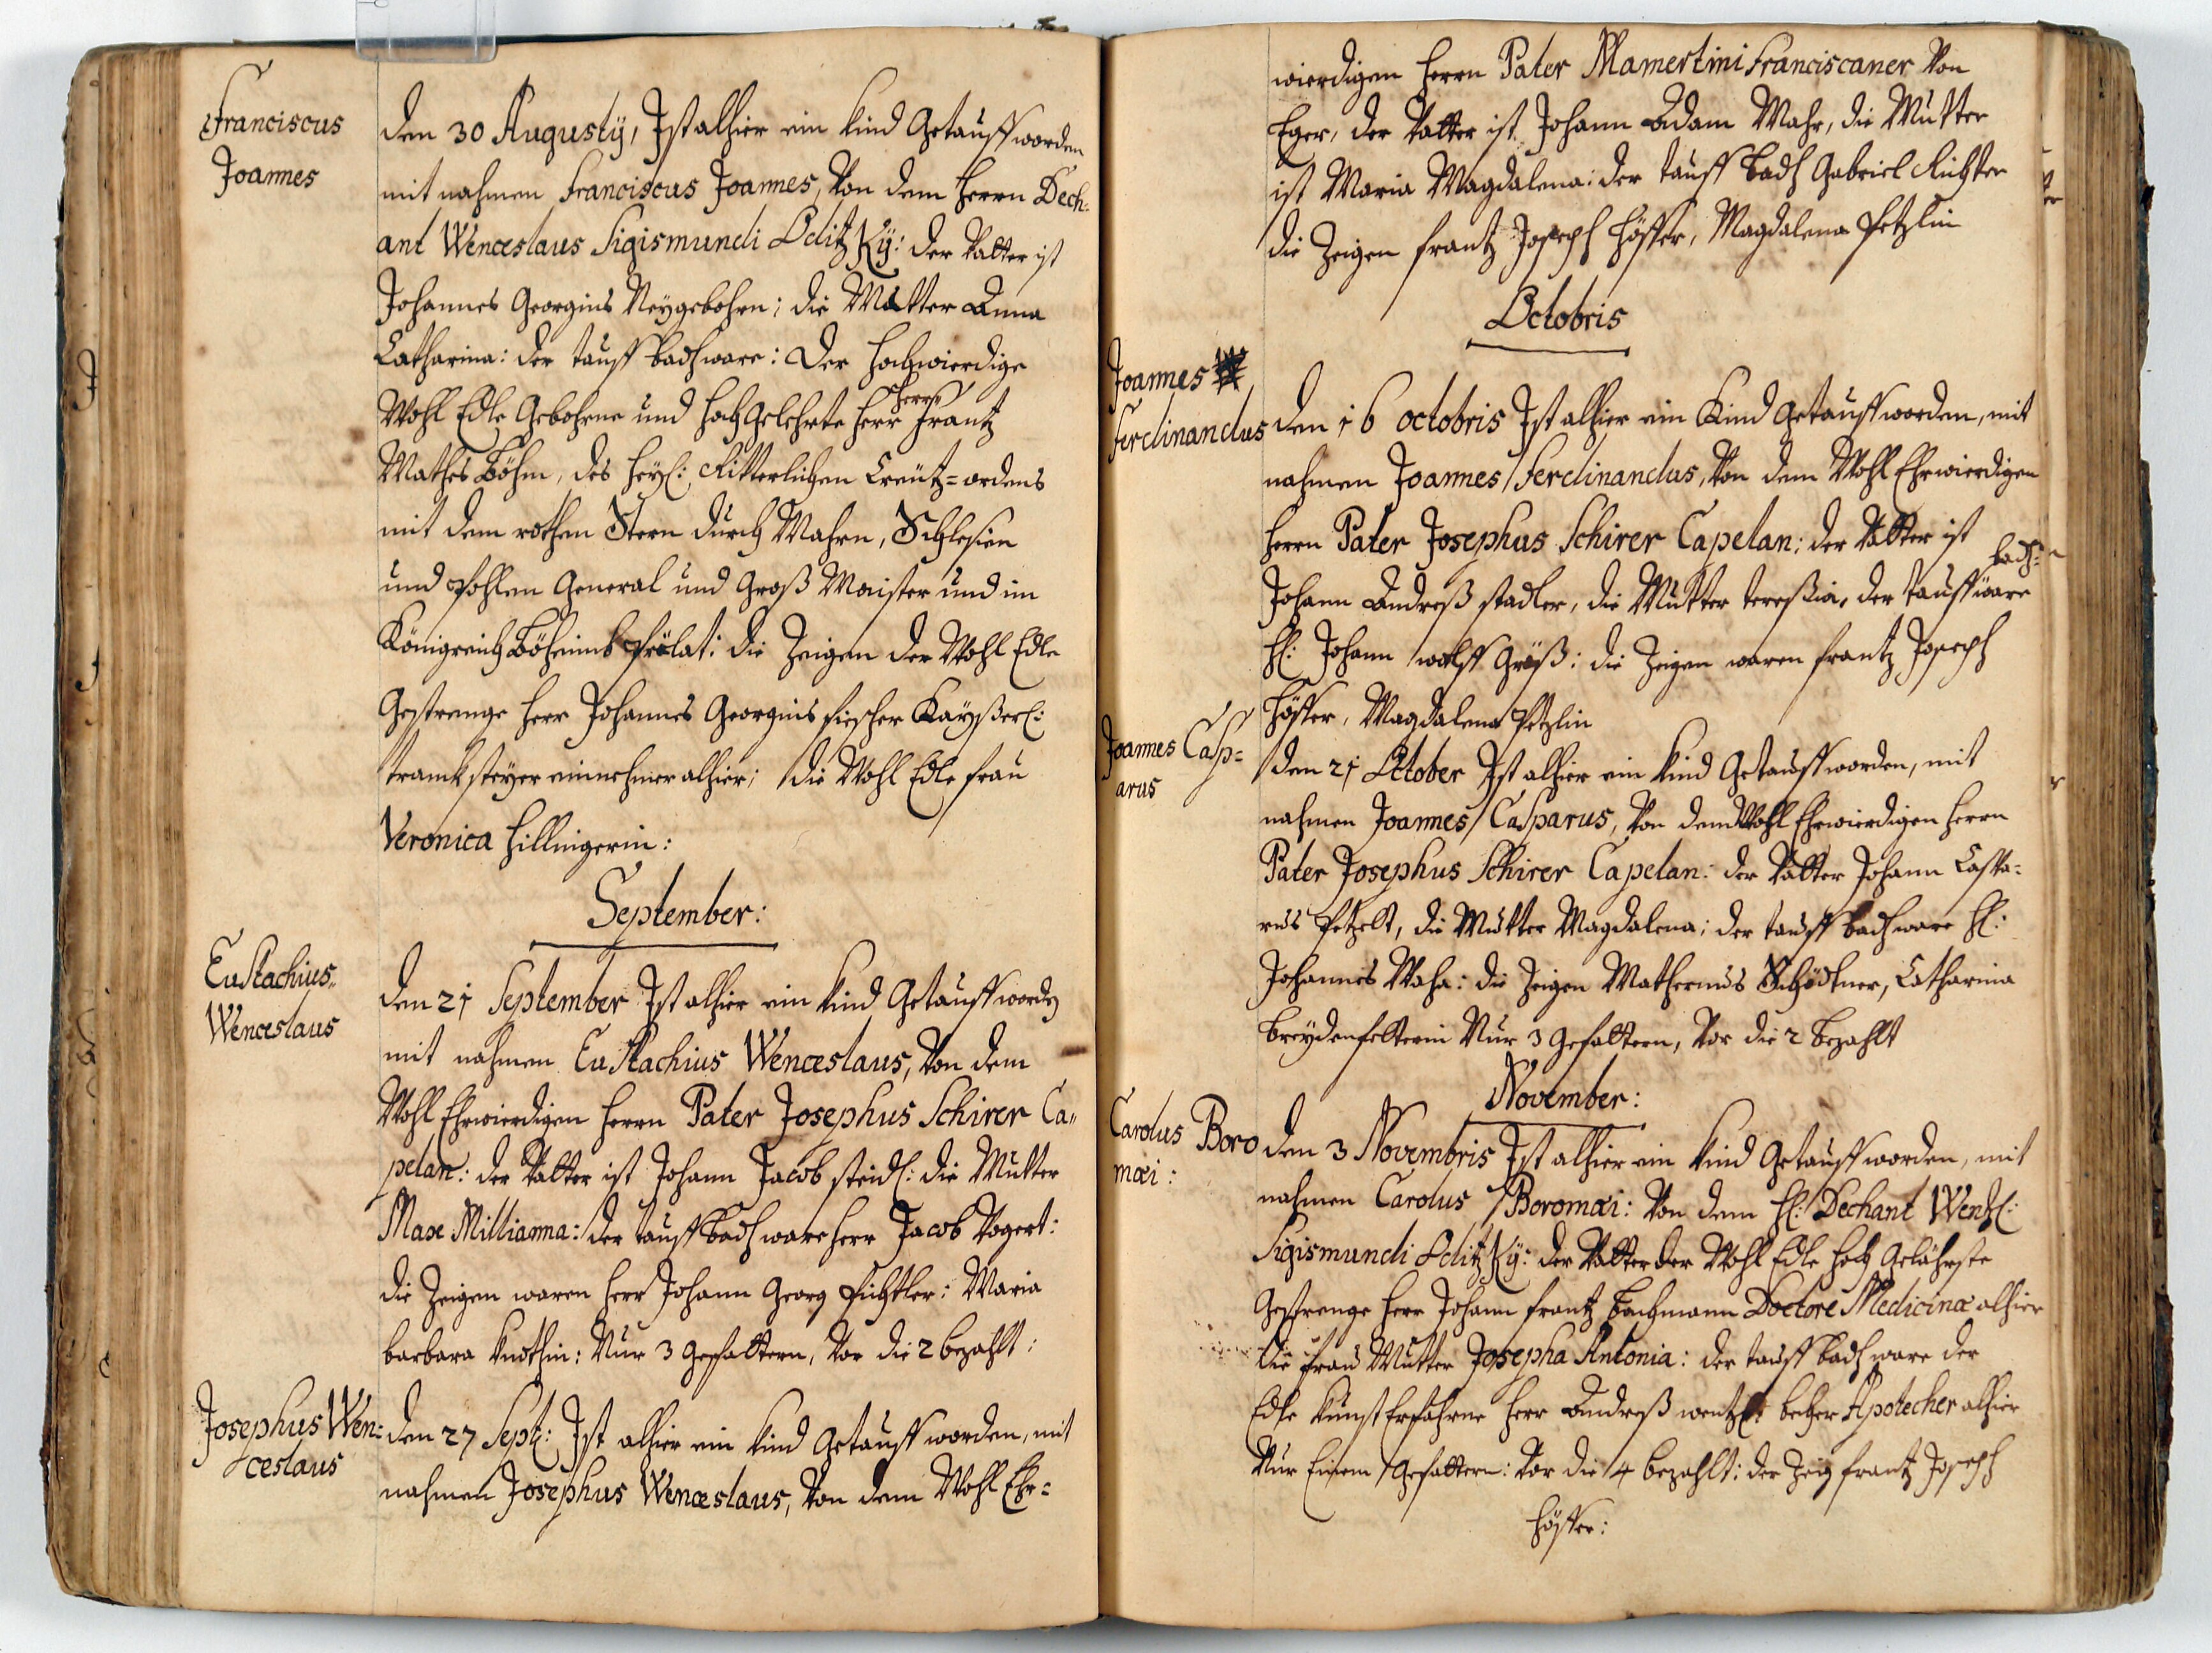 Franciscus
Joannes
den 30 Augustÿ, Ist alhier ein kind Getaufft worden
mit nahmen Franciscus Joannes, Von dem Herrn Dech-
ant Wenceslaus Sigismundi Oditzkÿ: der Vatter ist
Johannes Georgius Neÿgebohrn; die Mutter Anna
Catharina: der tauff badh ware: Der Hochwierdige
Wohl Edle Gebohrne und Hochgelehrte Herr Herr Frantz
Mathes Böhm, des Heÿl: Ritterlichen Creütz-ordens
mit dem rothen Stern durch Mahrn, Schlesien
und Pohlen General und Groß Maister und im
Königreich Böheimb Prölat: die Zeigen der Wohl Edle
Gestrenge Herr Johannes Georgius Fischer Kaÿßerl:
tranck steÿer einnehmer alhier; die Wohl Edle Frau
Veronica Hillingerin:
September:
Eustachius
Wenceslaus
den 21 September Ist alhier ein kind Getaufft worden
mit nahmen Eustachius Wenceslaus, Von dem
Wohl Ehrwierdigen Herrn Pater Josephus Schirer Ca-
pelan: der Vatter ist Johann Jacob steidl: die Mutter
Maxe Millianna: der tauff badh ware Herr Jacob Vogert:
die Zeigen waren Herr Johann Georg Fichtler: Maria
barbara Knothin: Nur 3 Gefattern, Vor die 2 bezahlt:
Josephus Wen-
ceslaus
den 27 Sept: Ist alhier ein kind Getaufft worden, mit
nahmen Josephus Wenceslaus, Von dem Wohl Ehr-
wierdigen Herrn Pater Mamertini Franciscaner Von
Eger, der Vatter ist Johann Adam Mahr, die Mutter
ist Maria Magdalena: der tauff badh Gabriel Richter
die Zeigen Frantz Joseph Höffer, Magdalena Petzlin
Octobris
Joannes
Ferdinandus
den 16 octobris Ist alhier ein Kind Getaufft worden, mit
nahmen Joannes Ferdinandus, Von dem Wohl Ehrwierdigen
Herrn Pater Josephus Schirer Capelan: der Vatter ist
Johann Andreß stadler, die Mutter tereßia, der tauff badh: ware
H: Johann wolff Größ: die Zeigen waren Frantz Joseph
Höffer, Magdalena Petzlin
Joannes Casp-
arus
den 21 October Ist alhier ein kind Getaufft worden, mit
nahmen Joannes Casparus, Von dem Wohl Ehrwierdigen Herrn
Pater Josephus Schirer Capelan: der Vatter Johann Caspa-
rus Petzelt, die Mutter Magdalena; der tauff badh ware H:
Johannes Maha: die Zeigen Mathernus Schödtner, Catharina
Breÿdenfelterin Nur 3 Gefattern, Vor die 2 bezahlt
November:
Carolus Boro
mæi:
den 3 Novembris Ist alhier ein kind Getaufft worden, mit
nahmen Carolus Boromæi: Von dem H: Dechant Wentzl:
Sigismundi Oditzkÿ: der Vatter der Wohl Edle Hoch Gelährste
Gestrenge Herr Johann Frantz Bachmann Doctore Medicinæ alhier
die Frau Mutter Josepha Antonia: der tauff badh ware der
Edle Kunst Erfahrne Herr Andreß wentzl: beher Apotecher alhier
Nur Einem Gefattern: Vor die 4 bezahlt: der Zeig Frantz Joseph
Höffer: